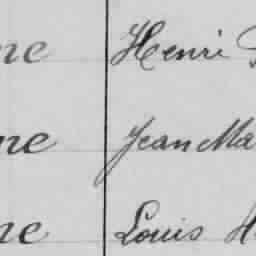 ne Henri
ne Jean Ma
ne Louis H